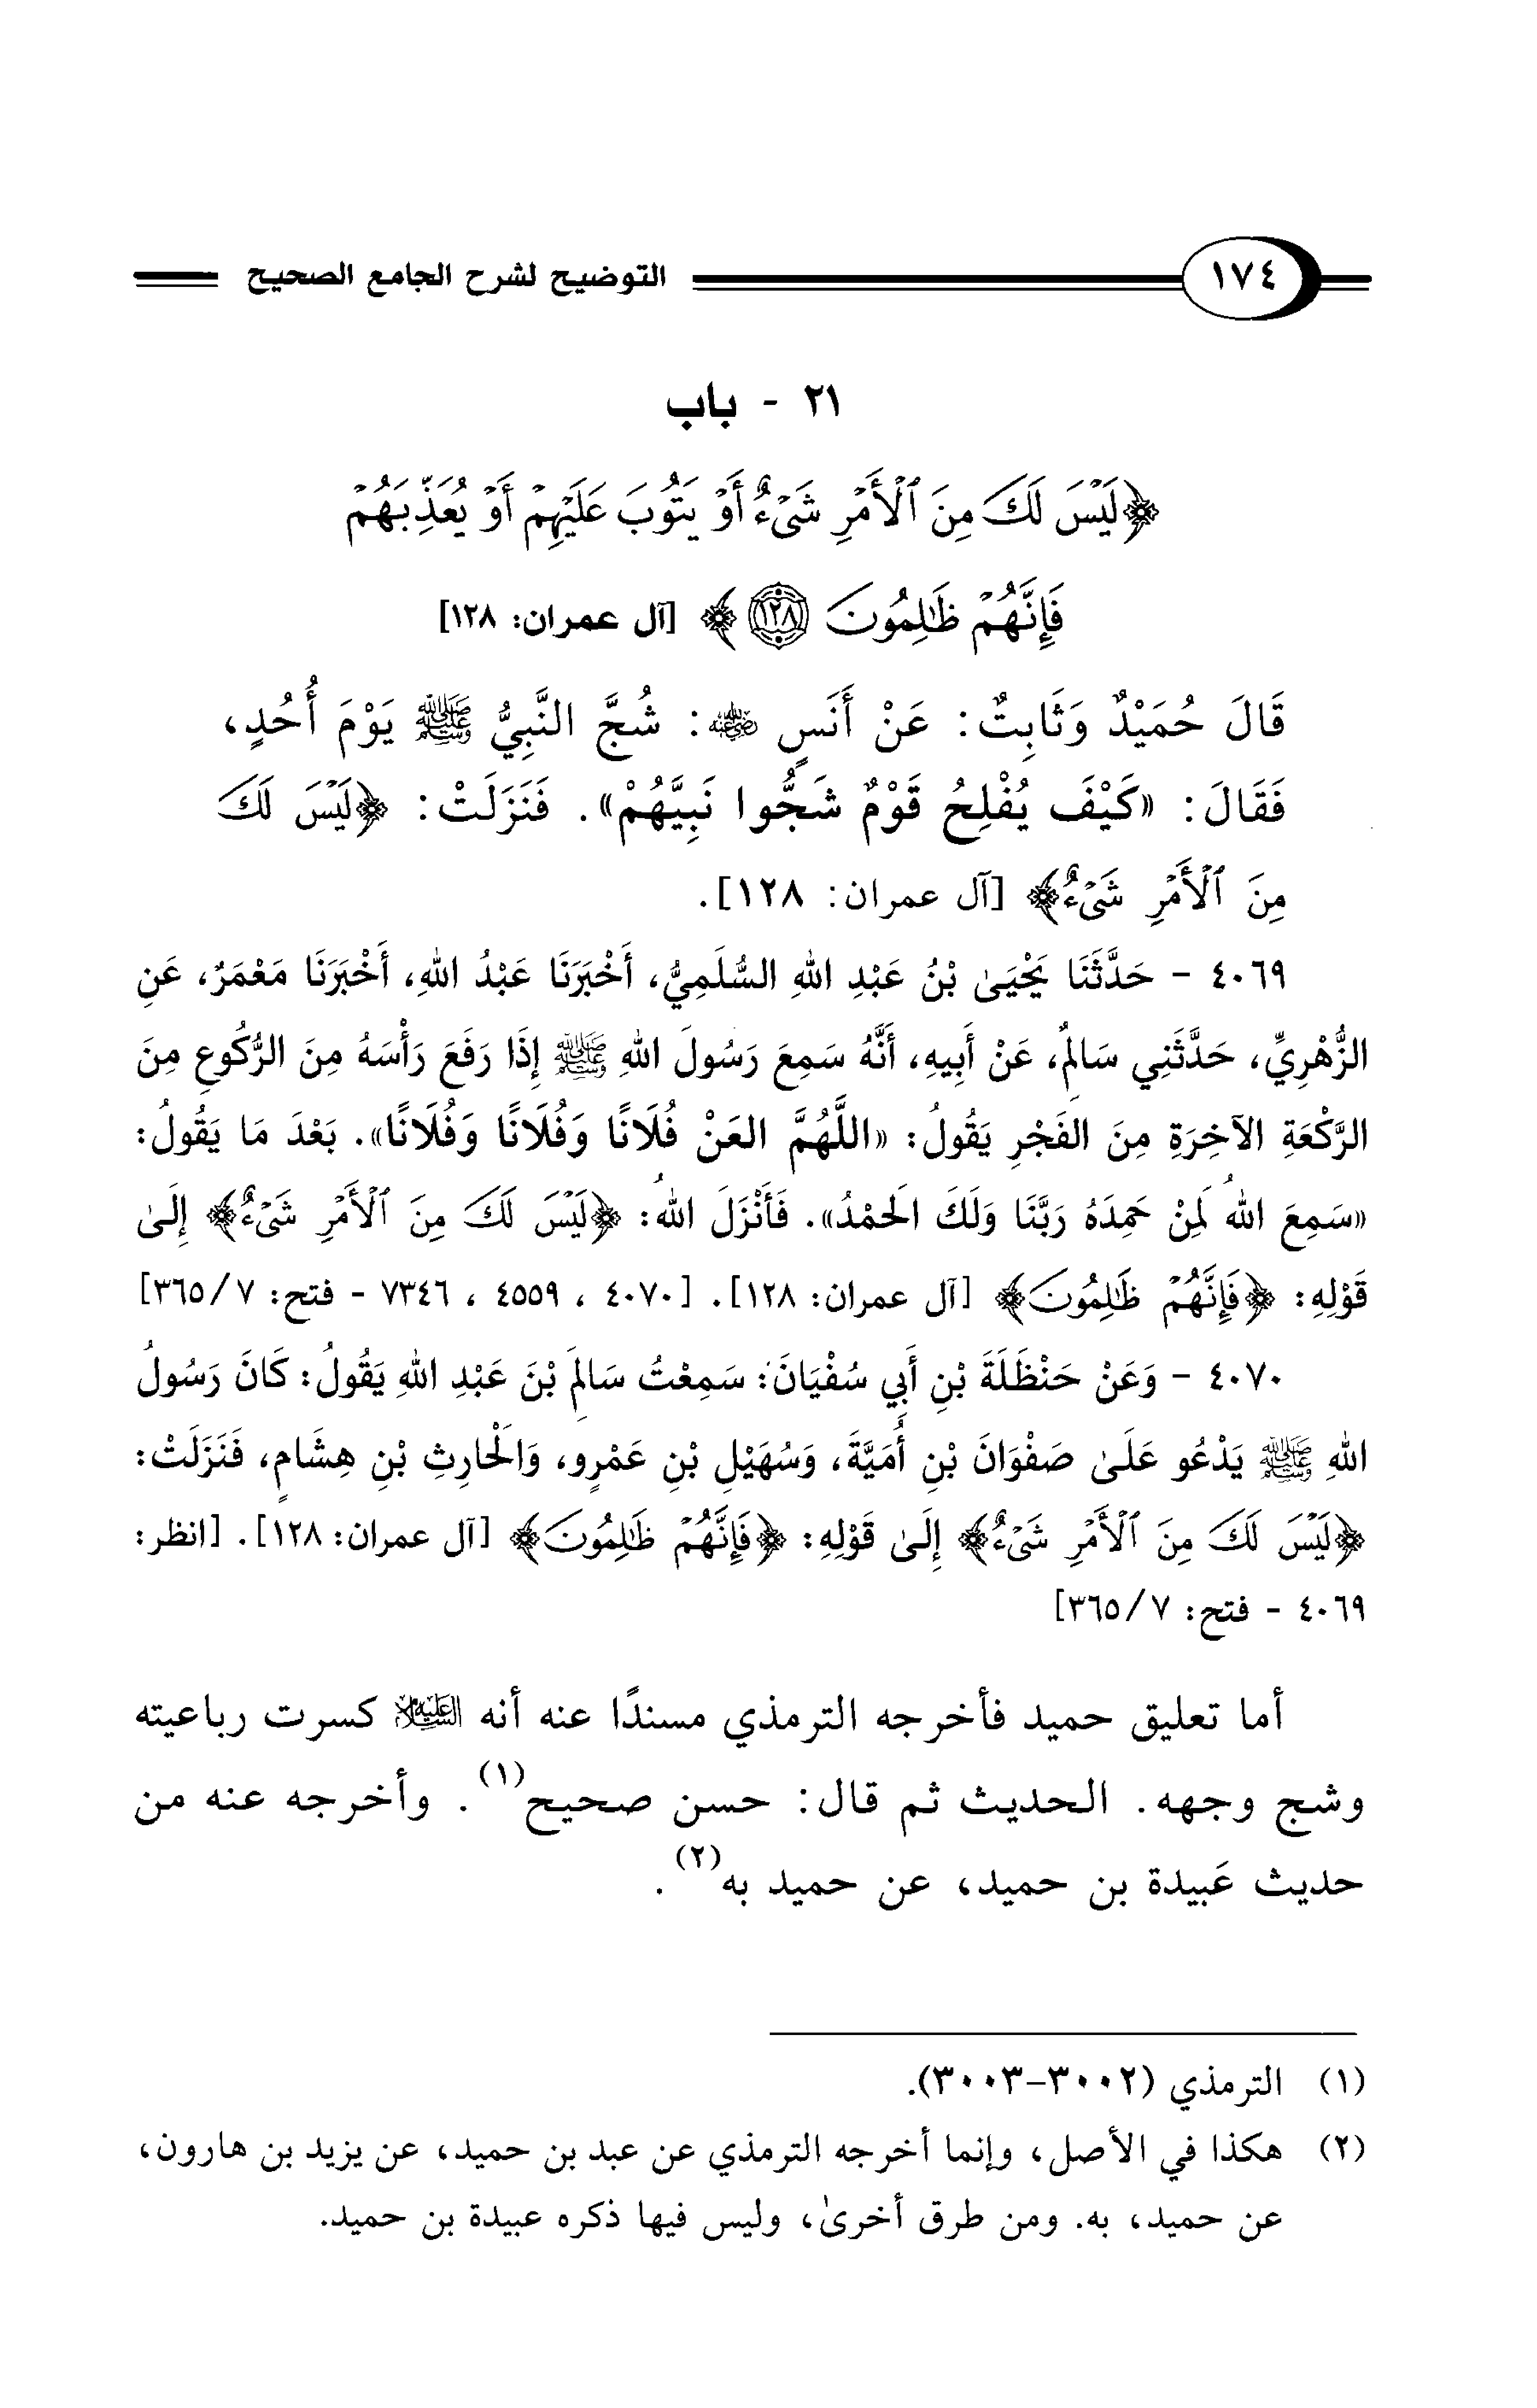 ١٧٤ التوضيح لشرح الجامع الصحيح
٢١ - باب
﴿لَيْسَ لَكَ مِنَ ٱلْأَمْرِ شَىْءٌ أَوْ يَتُوبَ عَلَيْهِمْ أَوْ يُعَذِّبَهُمْ
فَإِنَّهُمْ ظَٰلِمُونَ ١٢٨﴾ [آل عمران: ١٢٨]
قَالَ حُمَيْدٌ وَثَابِتٌ: عَنْ أَنَسٍ رضي الله عنه: شُجَّ النَّبِيُّ ﷺ يَوْمَ أُحُدٍ،
فَقَالَ: «كَيْفَ يُفْلِحُ قَوْمٌ شَجُّوا نَبِيَّهُمْ». فَنَزَلَتْ: ﴿لَيْسَ لَكَ
مِنَ ٱلْأَمْرِ شَىْءٌ﴾ [آل عمران: ١٢٨].
٤٠٦٩ - حَدَّثَنَا يَحْيَىٰ بْنُ عَبْدِ اللهِ السُّلَمِيُّ، أَخْبَرَنَا عَبْدُ اللهِ، أَخْبَرَنَا مَعْمَرٌ، عَنِ
الزُّهْرِيِّ، حَدَّثَنِي سَالِمٌ، عَنْ أَبِيهِ، أَنَّهُ سَمِعَ رَسُولَ اللهِ ﷺ إِذَا رَفَعَ رَأْسَهُ مِنَ الرُّكُوعِ مِنَ
الرَّكْعَةِ الآخِرَةِ مِنَ الفَجْرِ يَقُولُ: «اللَّهُمَّ العَنْ فُلَانًا وَفُلَانًا وَفُلَانًا». بَعْدَ مَا يَقُولُ:
«سَمِعَ اللهُ لِمَنْ حَمِدَهُ رَبَّنَا وَلَكَ الَحمْدُ». فَأَنْزَلَ اللهُ: ﴿لَيْسَ لَكَ مِنَ ٱلْأَمْرِ شَىْءٌ﴾ إِلَىٰ
قَوْلِهِ: ﴿فَإِنَّهُمْ ظَٰلِمُونَ﴾ [آل عمران: ١٢٨]. [٤٠٧٠ ، ٤٥٥٩ ، ٧٣٤٦ - فتح: ٧/ ٣٦٥]
٤٠٧٠ - وَعَنْ حَنْظَلَةَ بْنِ أَبِي سُفْيَانَ: سَمِعْتُ سَالِمَ بْنَ عَبْدِ اللهِ يَقُولُ: كَانَ رَسُولُ
اللهِ ﷺ يَدْعُو عَلَىٰ صَفْوَانَ بْنِ أُمَيَّةَ، وَسُهَيْلِ بْنِ عَمْرٍو، وَالْحَارِثِ بْنِ هِشَامٍ، فَنَزَلَتْ:
﴿لَيْسَ لَكَ مِنَ ٱلْأَمْرِ شَىْءٌ﴾ إِلَىٰ قَوْلِهِ: ﴿فَإِنَّهُمْ ظَٰلِمُونَ﴾ [آل عمران: ١٢٨]. [انظر:
٤٠٦٩ - فتح: ٧/ ٣٦٥]
أما تعليق حميد فأخرجه الترمذي مسندًا عنه أنه عليه السلام كسرت رباعيته
وشج وجهه. الحديث ثم قال: حسن صحيح(١). وأخرجه عنه من
حديث عَبيدة بن حميد، عن حميد به(٢).
(١) الترمذي (٣٠٠٢-٣٠٠٣).
(٢) هكذا في الأصل، وإنما أخرجه الترمذي عن عبد بن حميد، عن يزيد بن هارون،
عن حميد، به. ومن طرق أخرىٰ، وليس فيها ذكره عبيدة بن حميد.